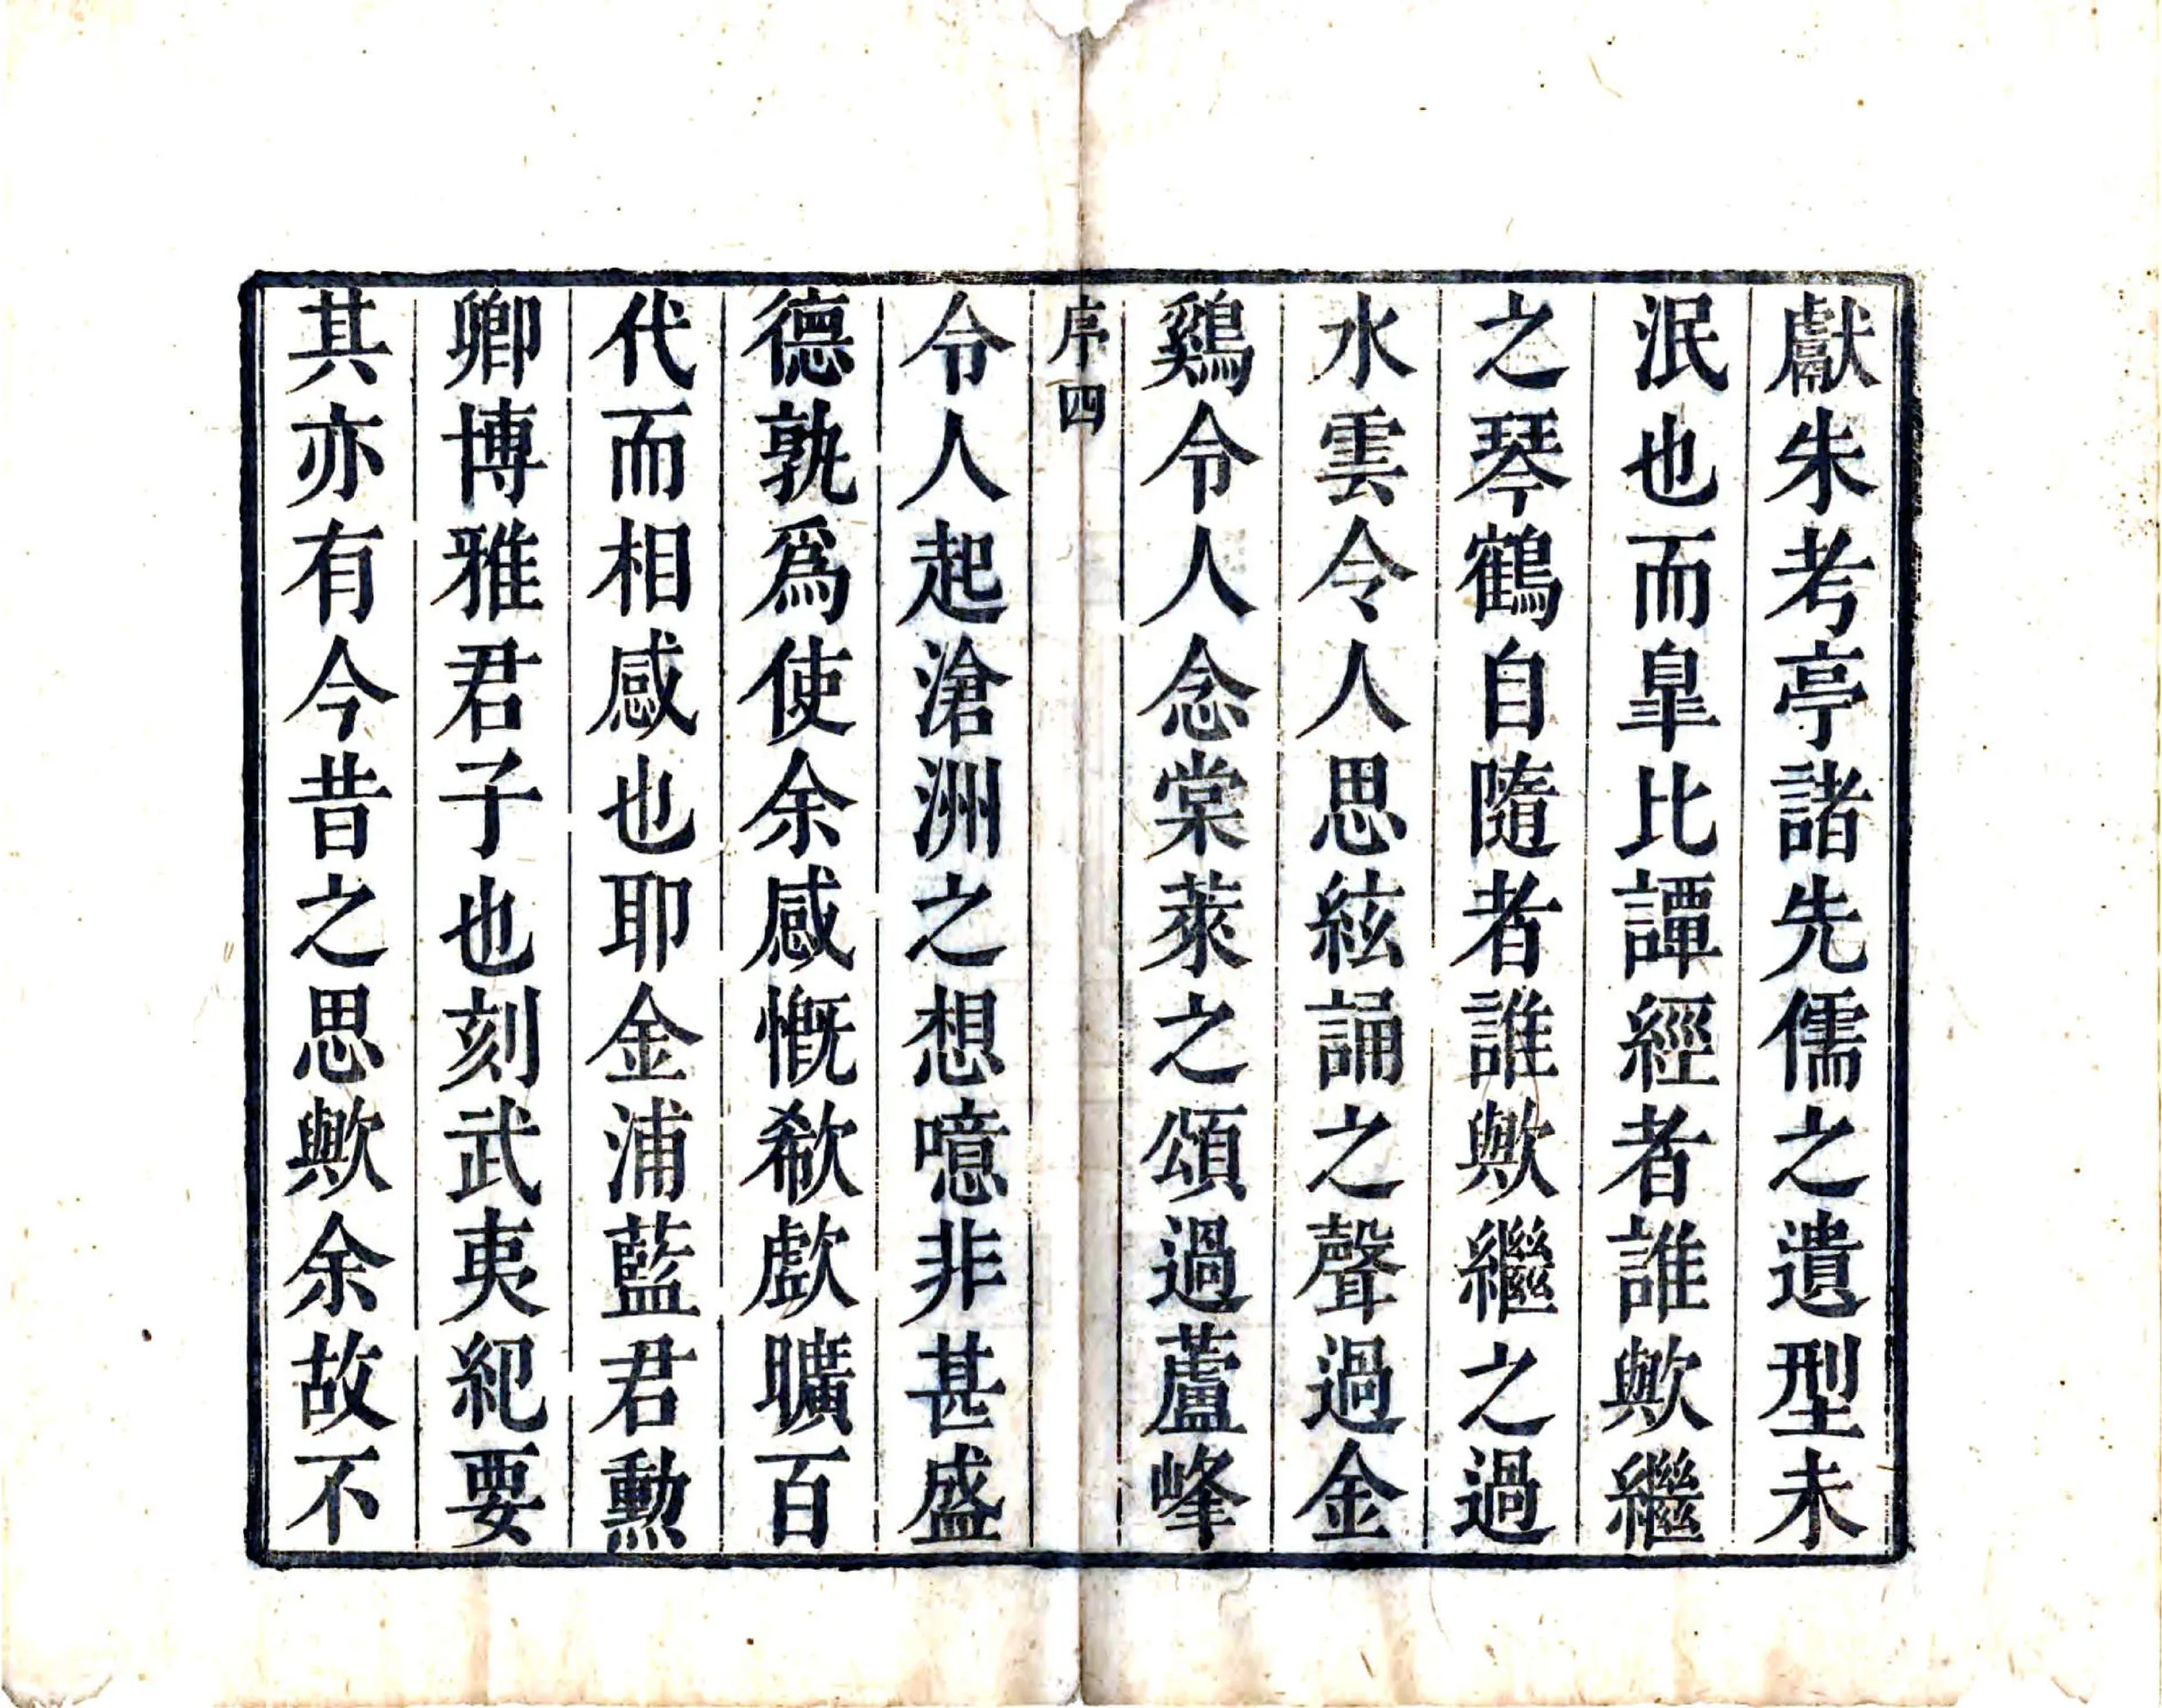 獻朱考亭諸先儒之遺型未
泯也而臯比譚經者誰歟繼
之琴鶴自隨者誰歟繼之過
水雲令人思絃誦之聲過金
鷄令人念棠萊之頌過蘆峰
序四
令人起滄洲之想噫非甚盛
德孰爲使余感慨欷歔曠百
代而相感也耶金浦藍君勲
卿博雅君子也刻武夷紀要
其亦有今昔之思歟余故不